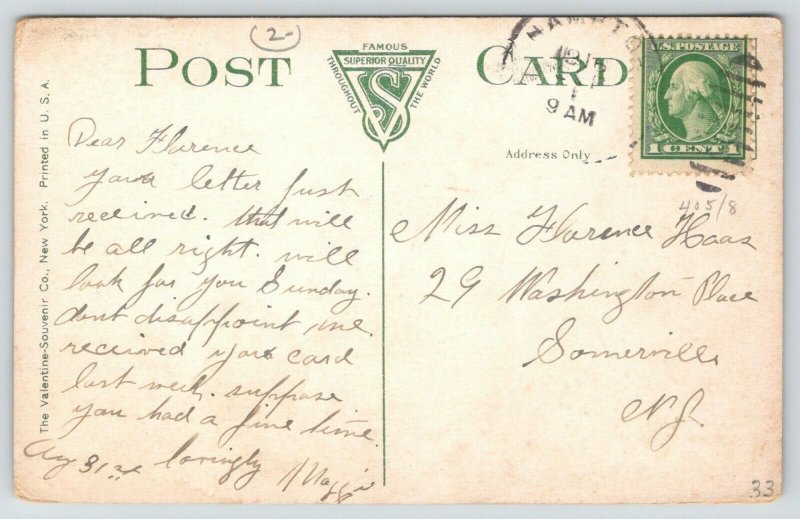 (2-)
POST CARD
FAMOUS
SUPERIOR QUALITY
THROUGHOUT THE WORLD
VS
HAMPTO
9 AM
U.S. POSTAGE
1 CENT 1
Address Only
405/8
The Valentine-Souvenir Co., New York. Printed in U. S. A.
Dear Florence
your letter just
received. that will
be all right. will
look for you Sunday.
dont disappoint me.
received your card
last week. suppose
you had a fine time.
Aug 31st lovingly Maggie
Miss Florence Haas
29 Washington Place
Somerville
N.J.
33